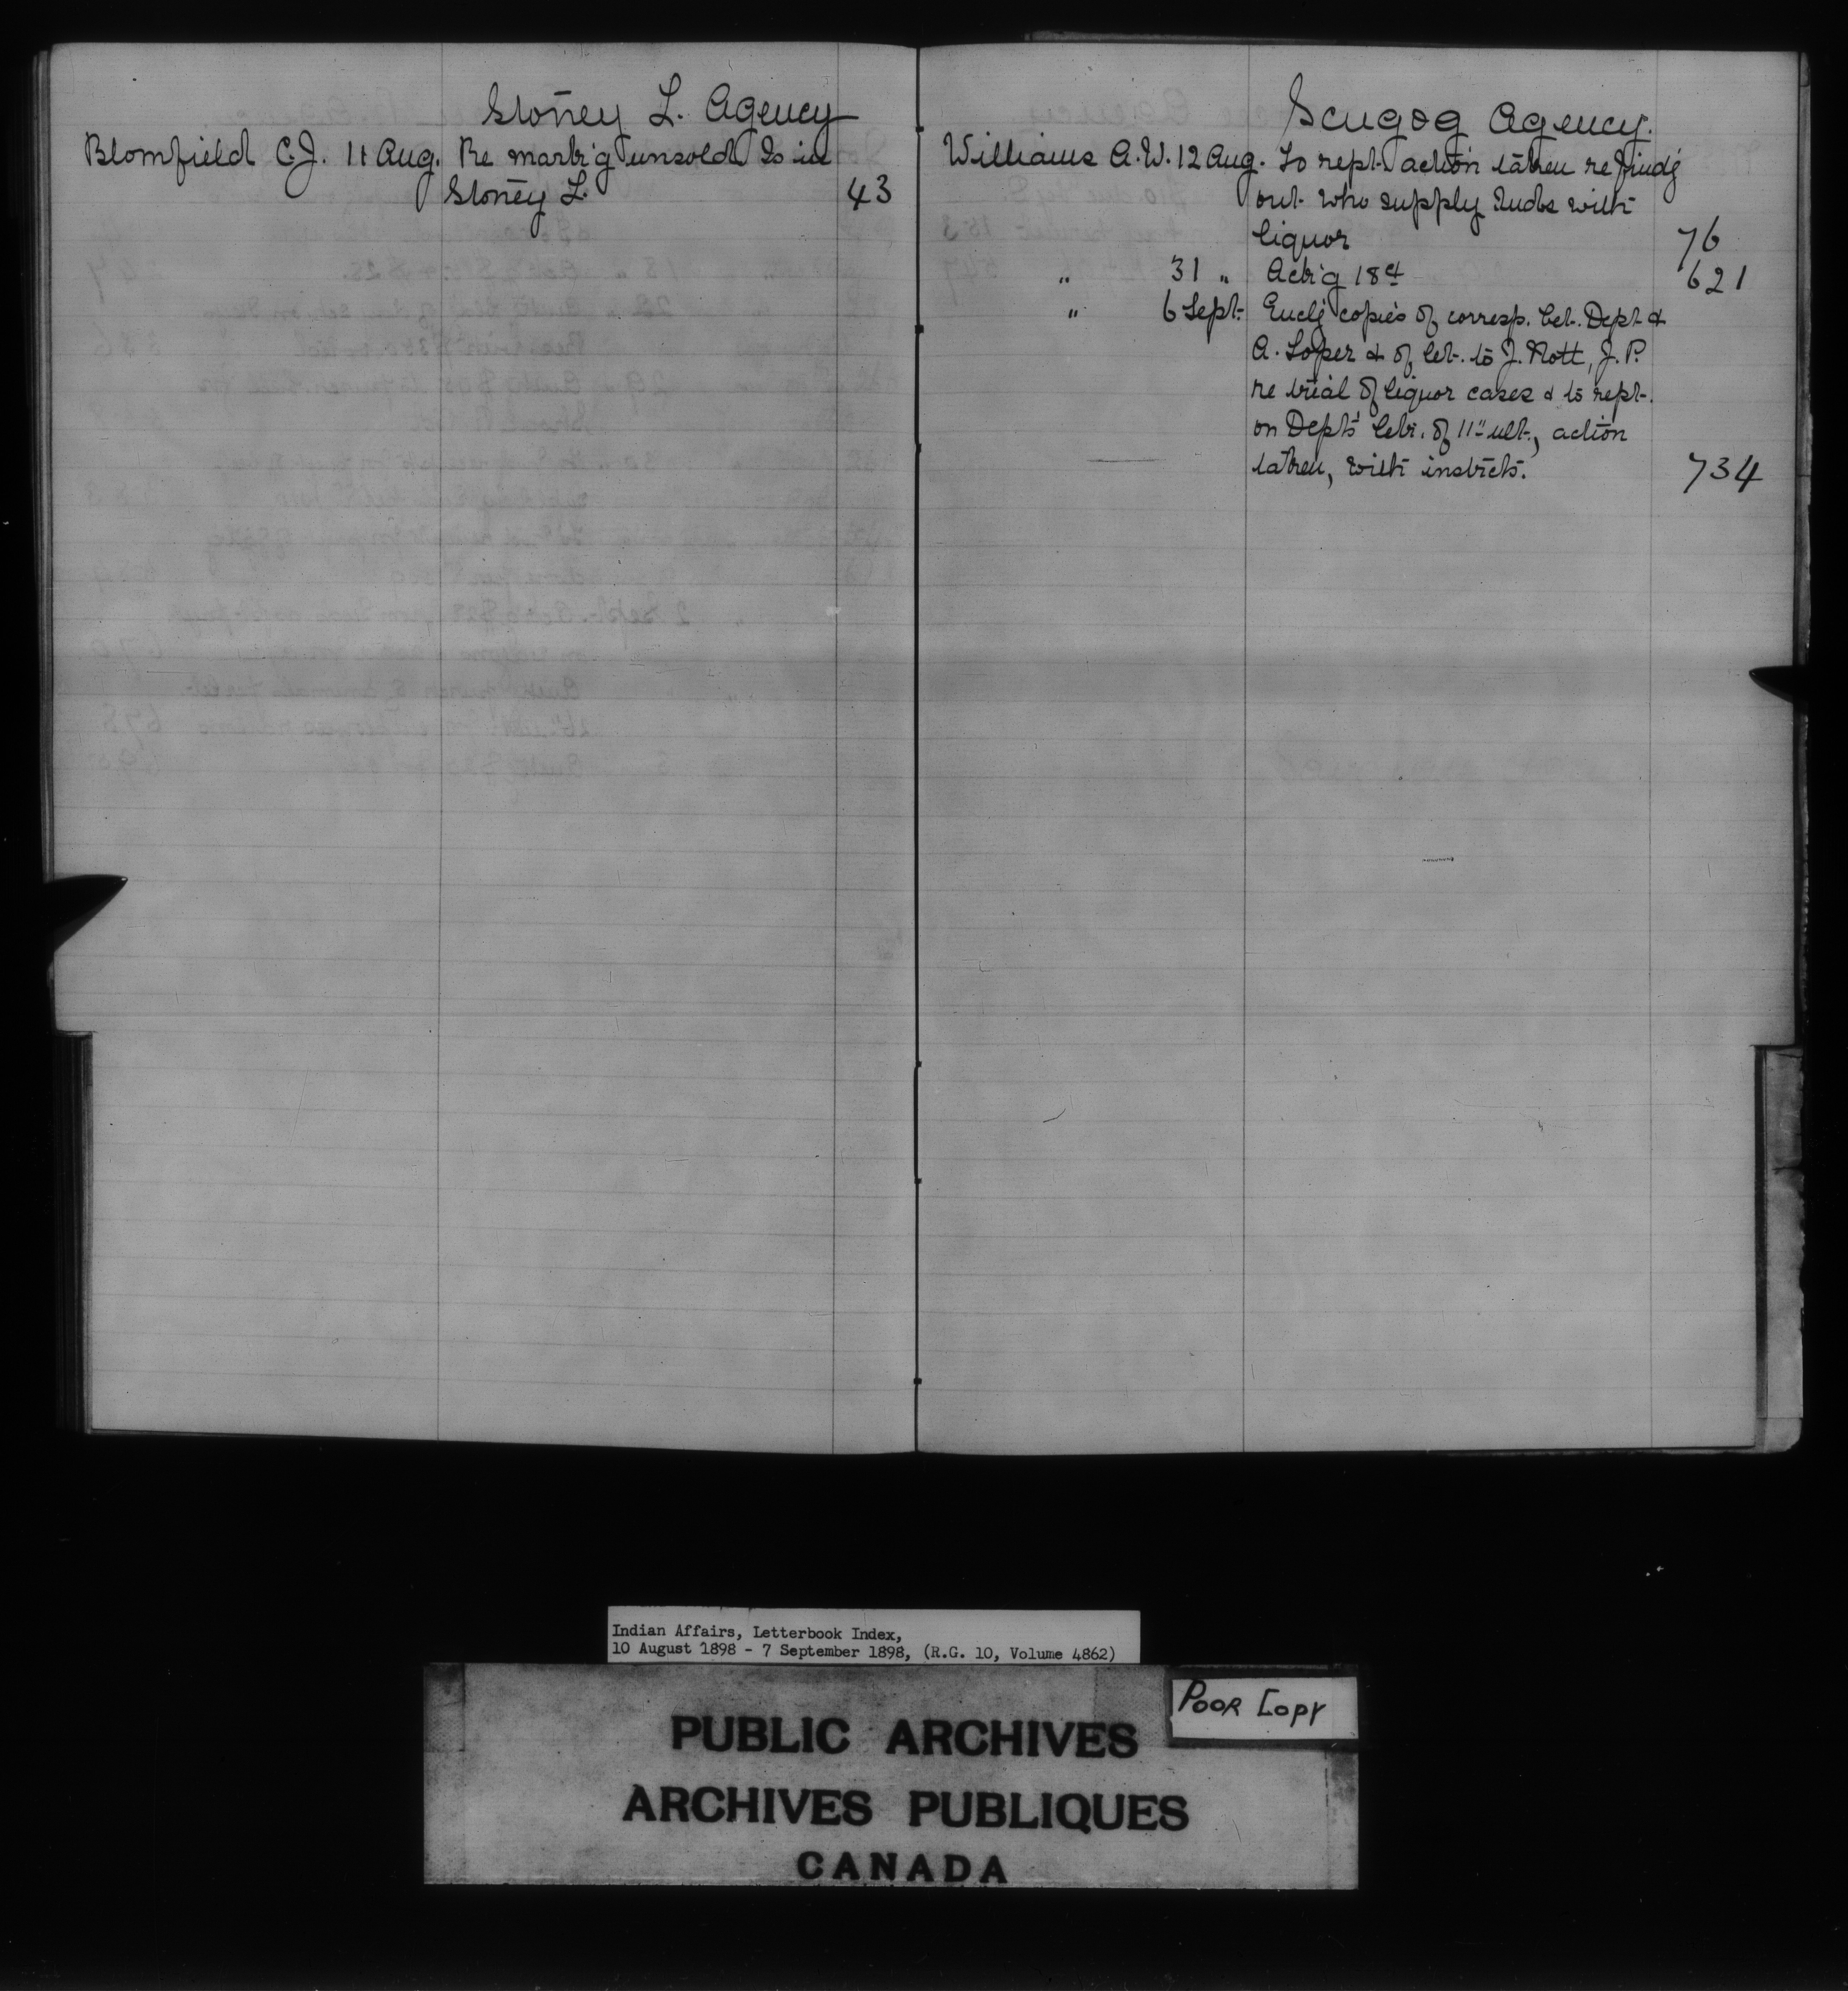 Stoney L. Agency
Blomfield C.J. 11 Aug. Re mark'g unsold Is in
Stoney L. 43
Scugog Agency.
Williams A.W. 12 Aug. To rept. action taken re find'g
out who supply Inds with
liquor 76
" 31 " Ack'g 18th 621
" 6 Sept. Encl'g copies of corresp. bet. Dept &
A. Loper & of let. to J. Nott, J.P.
re trial of liquor cases & to rept.
on Dept's letr. of 11" ult., action
taken, with instrcts. 734
Indian Affairs, Letterbook Index,
10 August 1898 - 7 September 1898, (R.G. 10, Volume 4862)
POOR COPY
PUBLIC ARCHIVES
ARCHIVES PUBLIQUES
CANADA